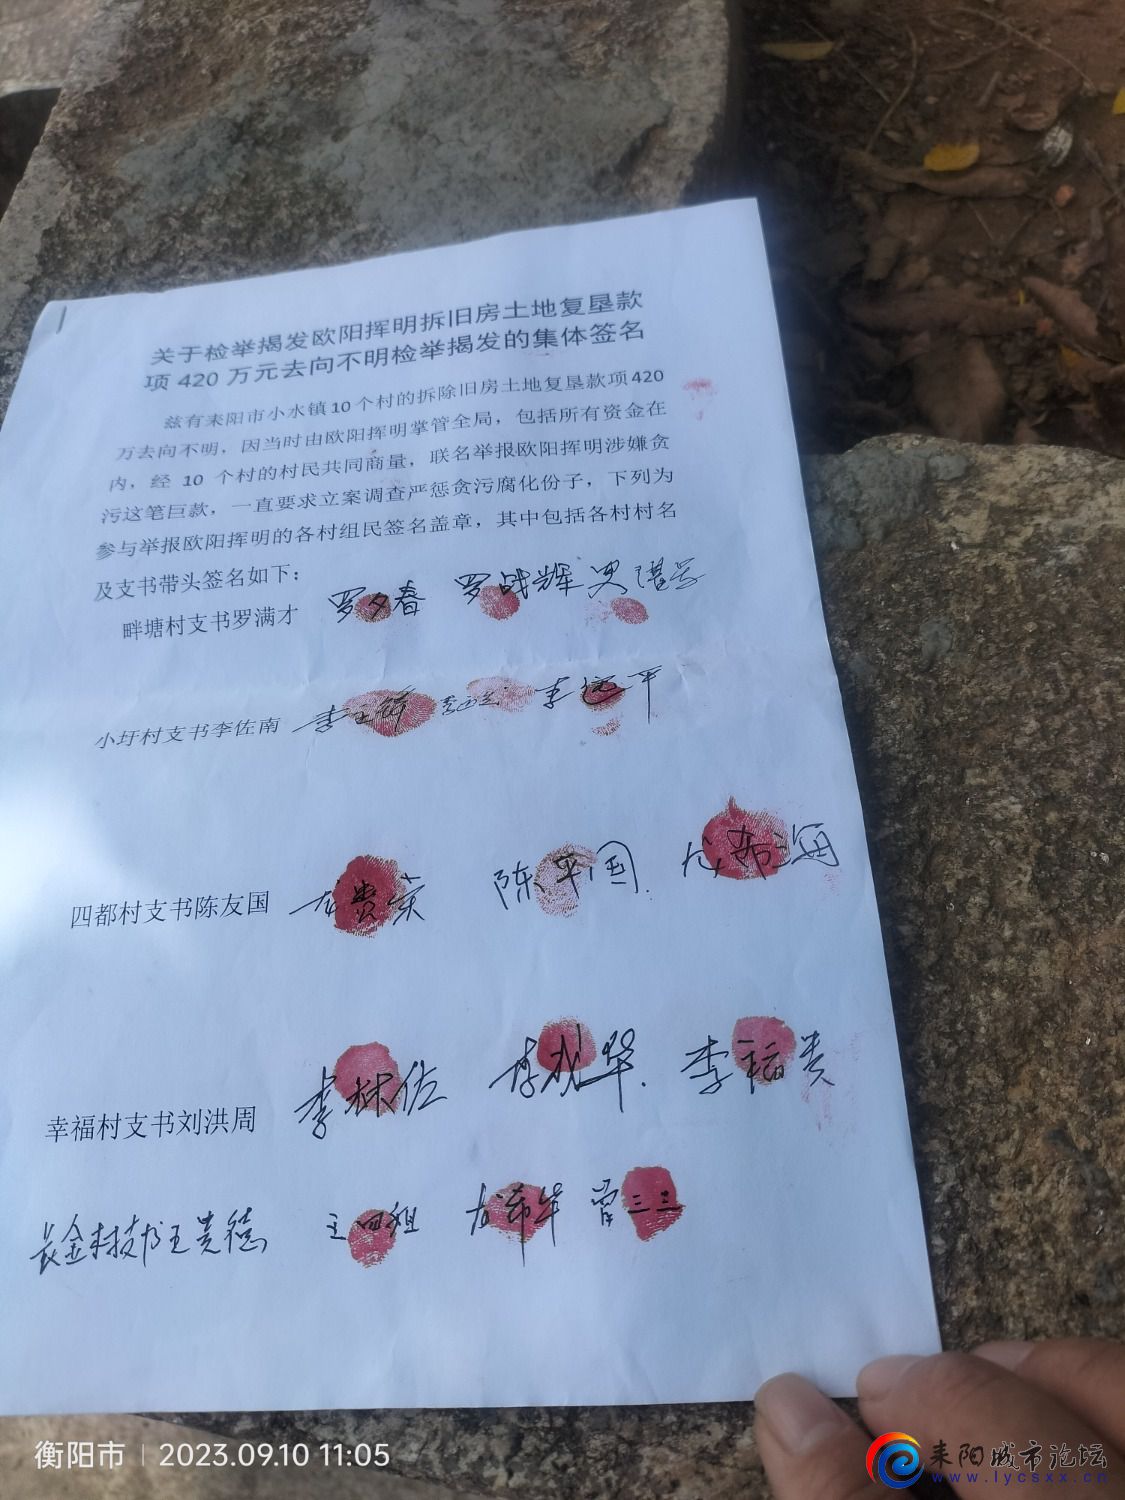 关于检举揭发欧阳挥明拆旧房土地复垦款
项 420 万元去向不明检举揭发的集体签名
兹有耒阳市小水镇 10 个村的拆除旧房土地复垦款项 420
万去向不明，因当时由欧阳挥明掌管全局，包括所有资金在
内，经 10 个村的村民共同商量，联名举报欧阳挥明涉嫌贪
污这笔巨款，一直要求立案调查严惩贪污腐化份子，下列为
参与举报欧阳挥明的各村组民签名盖章，其中包括各村村名
及支书带头签名如下：
畔塘村支书罗满才 罗夕春 罗战辉
小圩村支书李佐南 李远平
四都村支书陈友国 陈平国 龙希海
幸福村支书刘洪周 李林佐 李成华 李福贵
长金村支书王贵德 王四祖 龙希年 曾三三
衡阳市 2023.09.10 11:05
耒阳城市论坛
www.lycsxx.cn